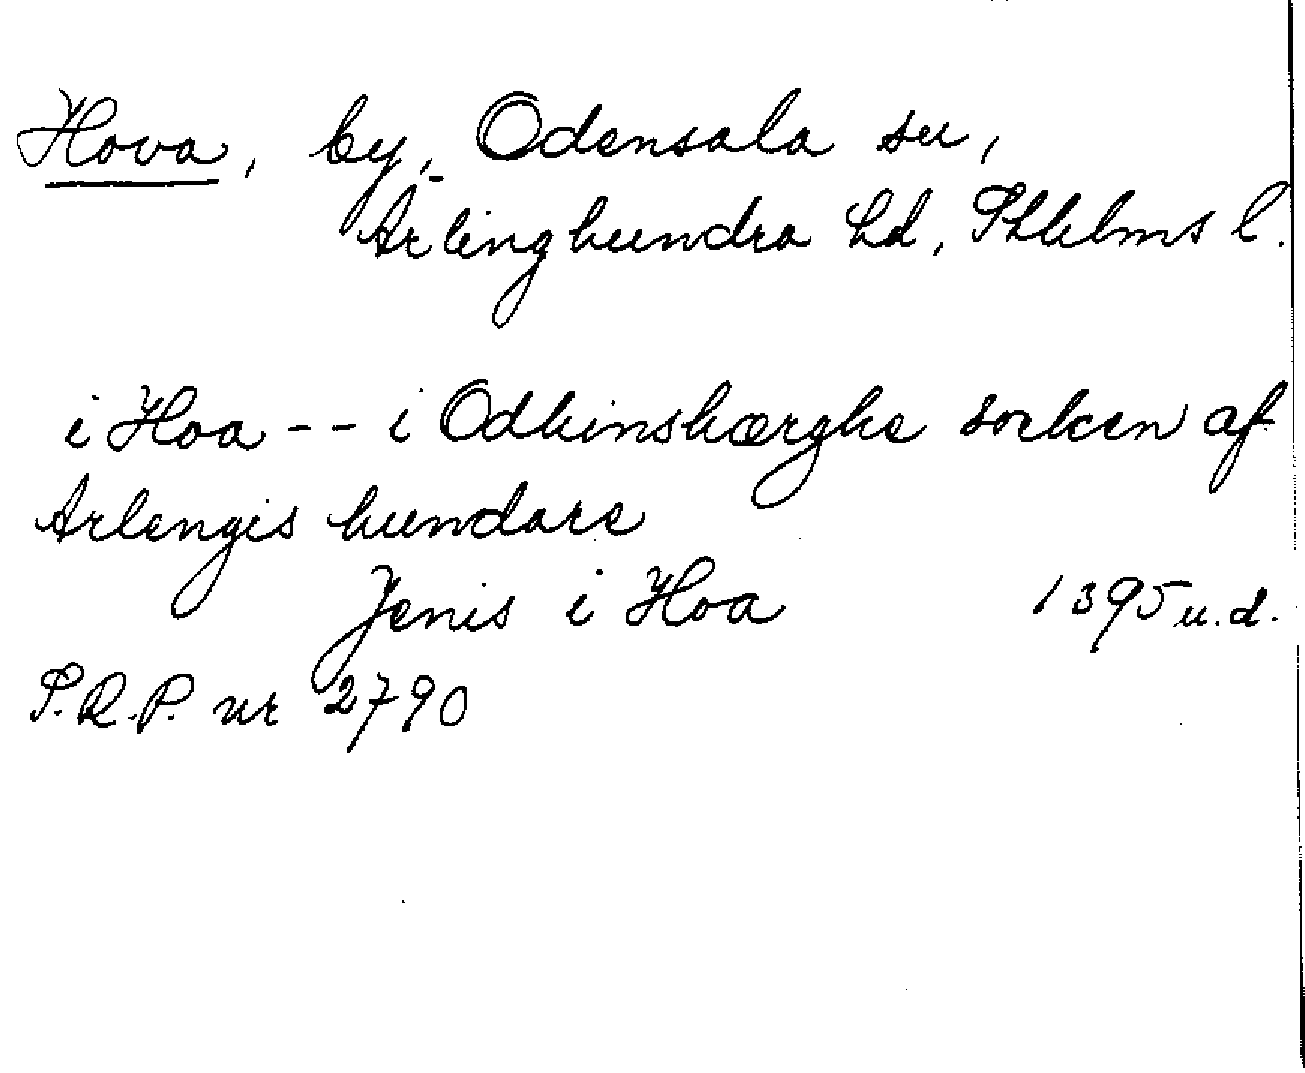 Hova, by, Odensala sn,
Ärlinghundra hd, Sthlms l.
i Hoa -- i Odhinshærghe sokn af
Arlengis hundare
Jenis i Hoa 1395 u.d.
S.R.P. nr 2790